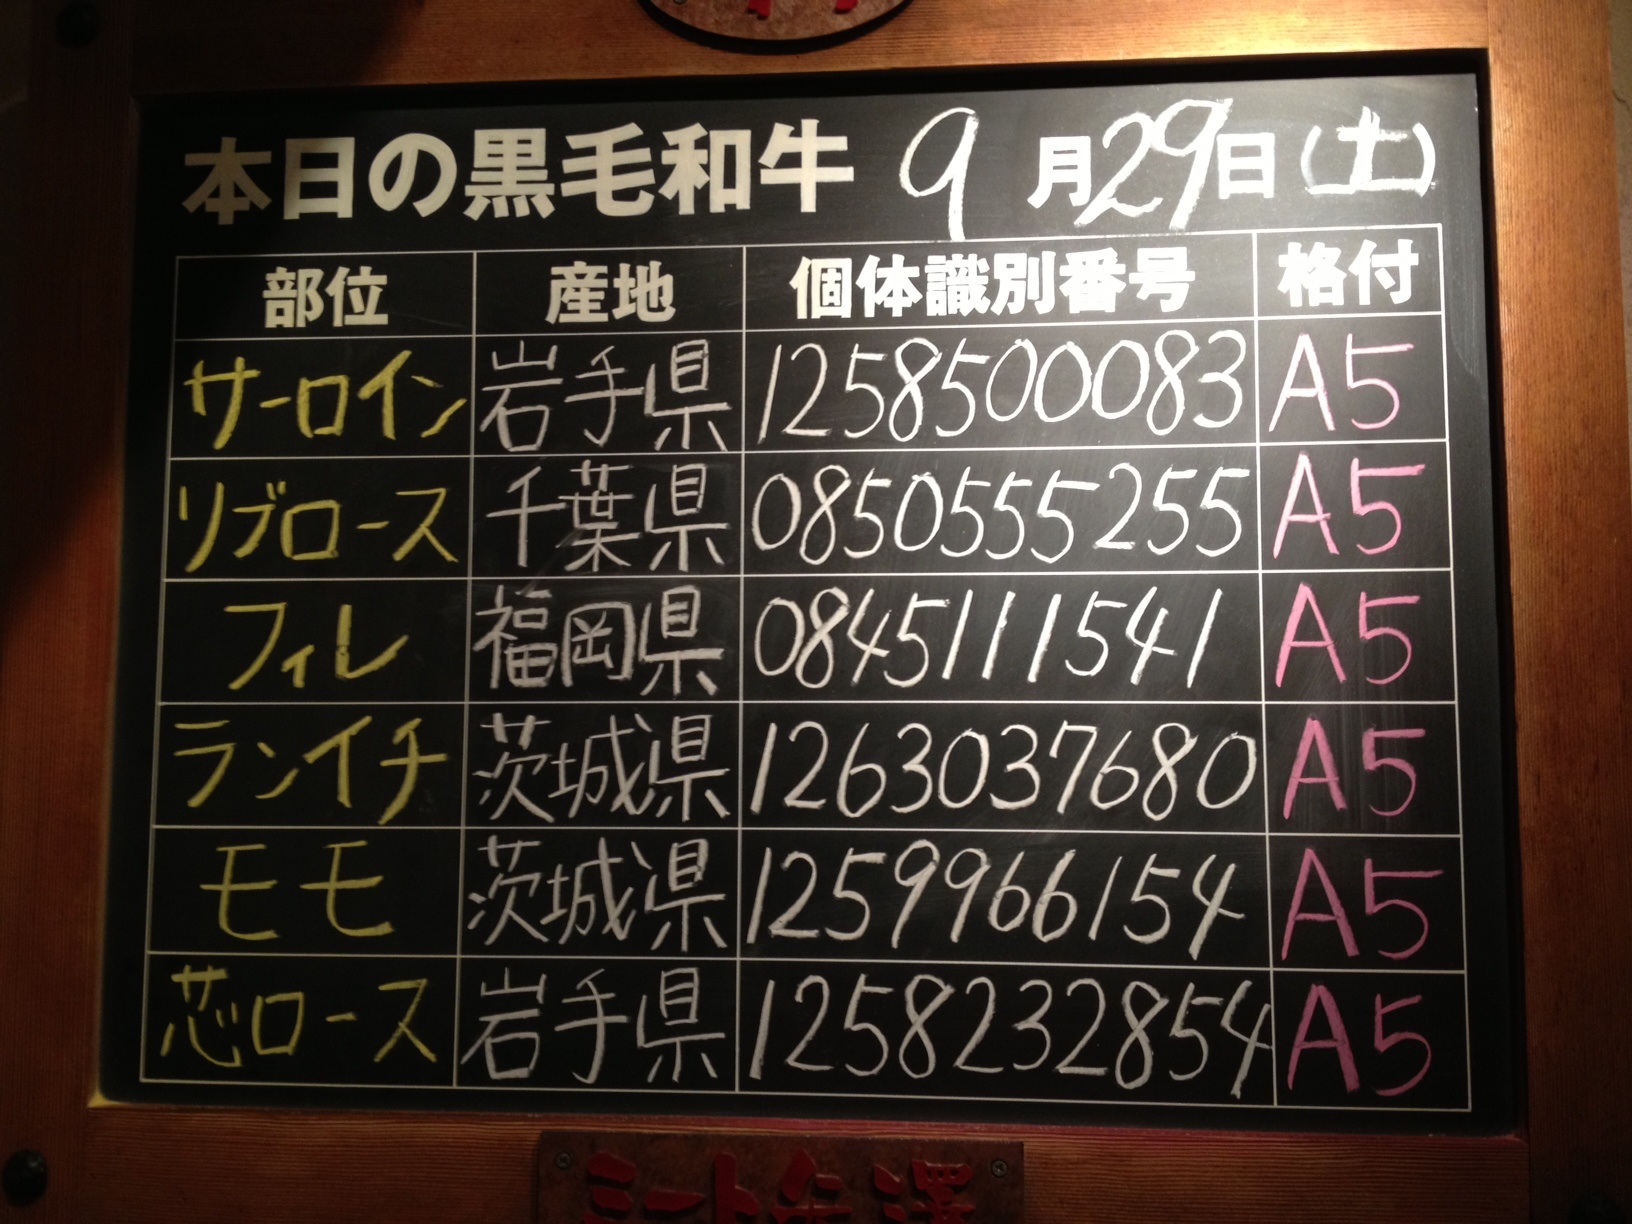 本日の黒毛和牛 9月29日(土)
部位 産地 個体識別番号 格付
サーロイン 岩手県 1258500083 A5
リブロース 千葉県 0850555255 A5
フィレ 福岡県 0845111541 A5
ランイチ 茨城県 1263037680 A5
モモ 茨城県 1259966154 A5
芯ロース 岩手県 1258232854 A5
ミート